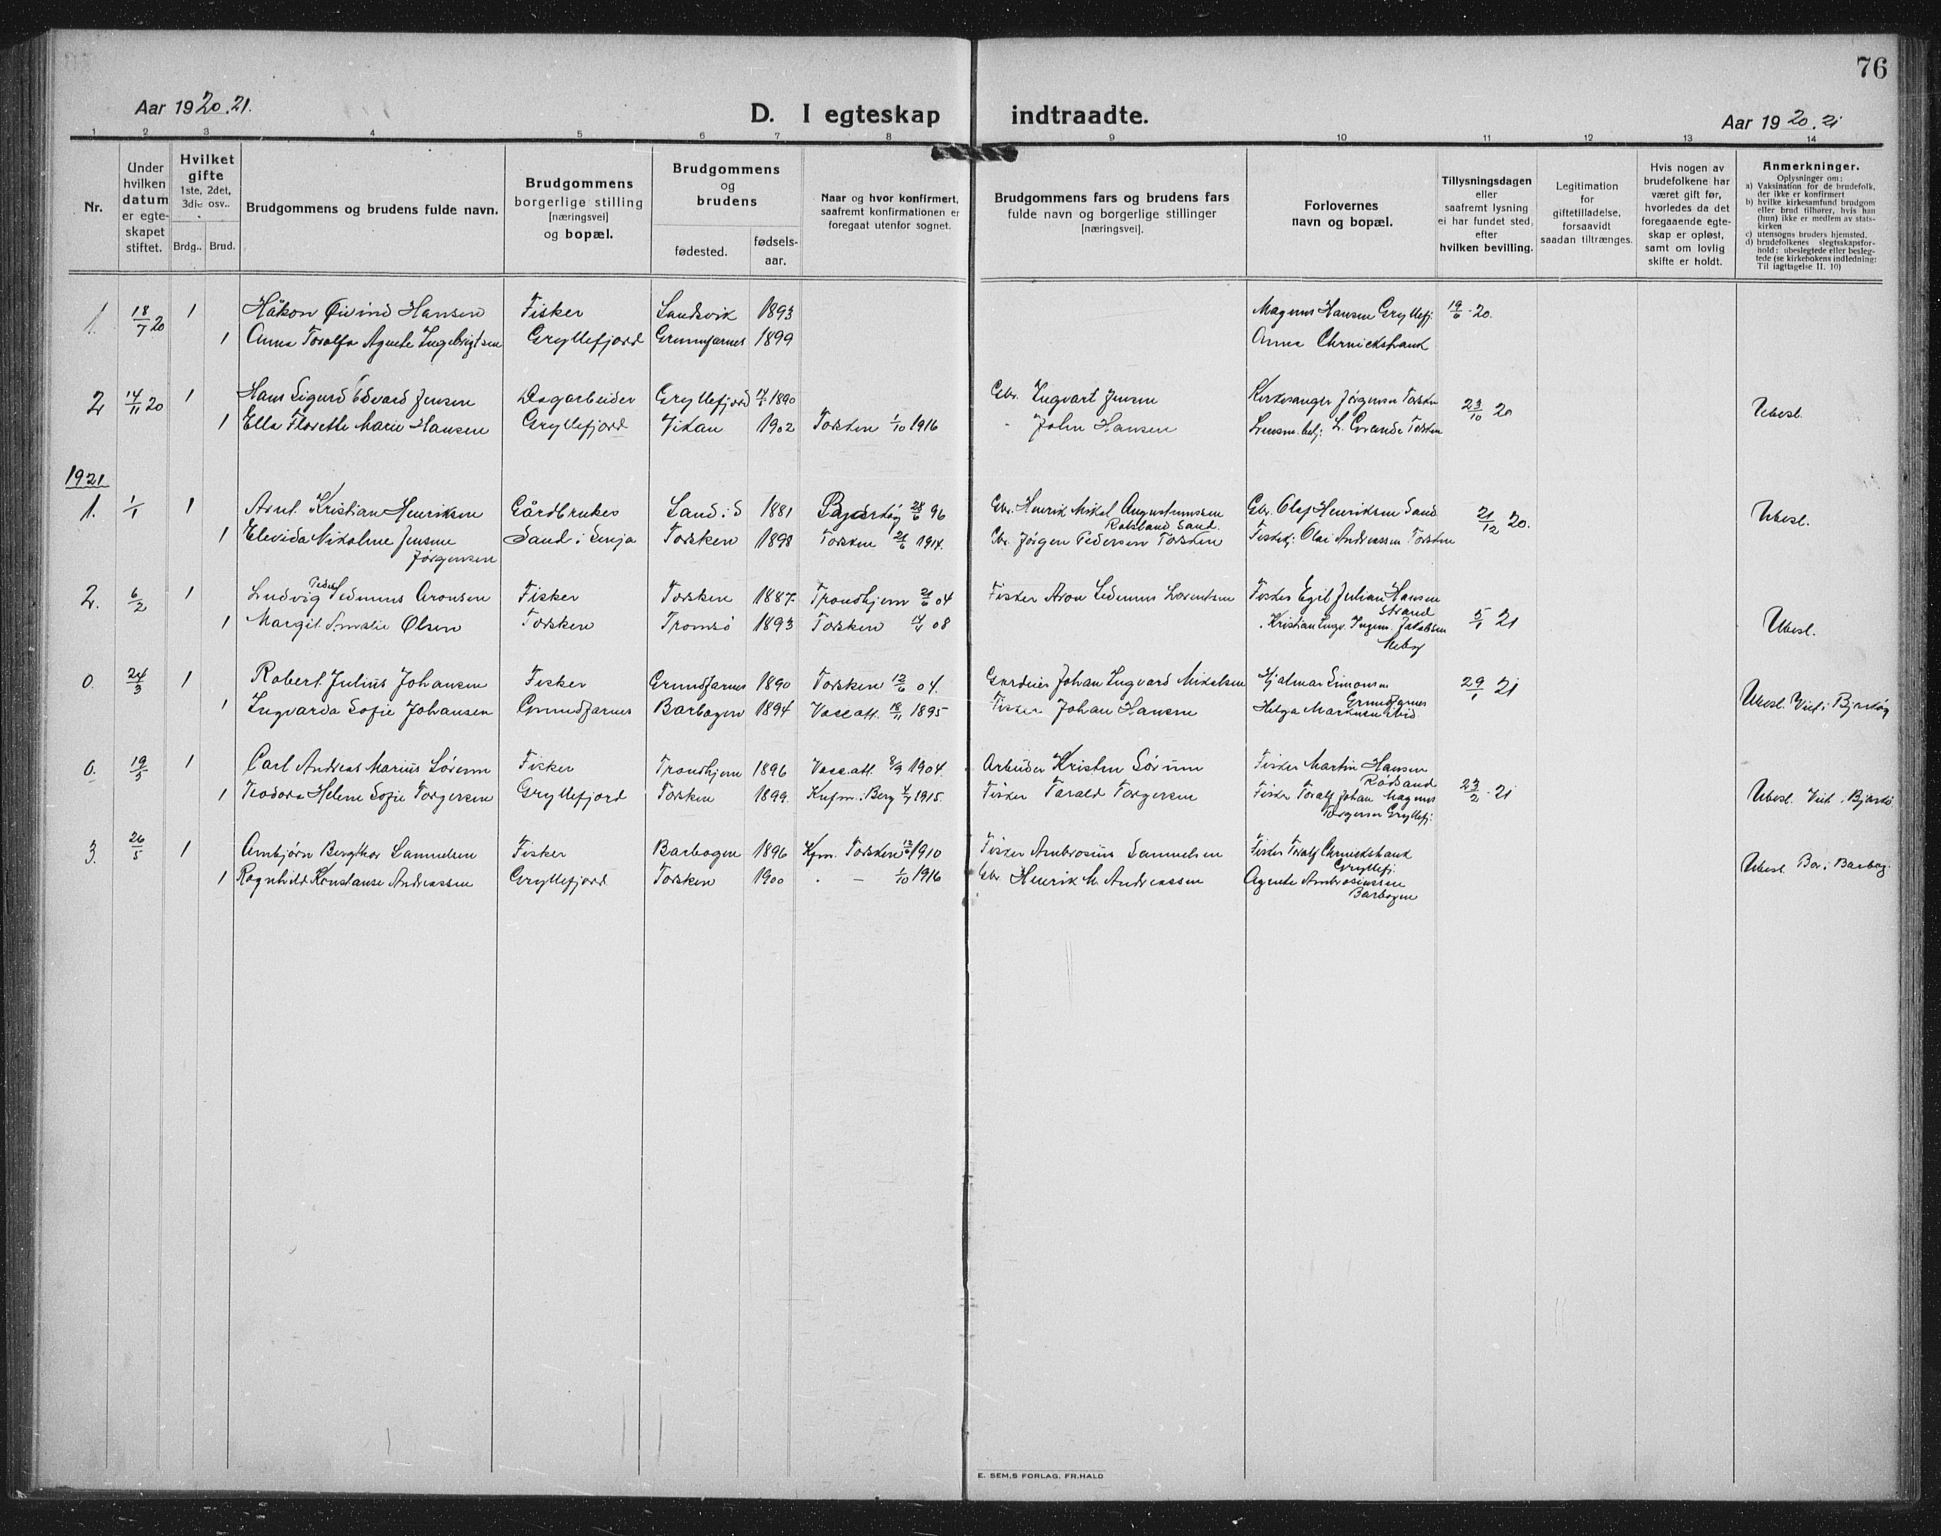 76
Aar 1920.21.
D. I egteskap indtraadte.
Aar 1920.21
1 2 3 4 5 6 7 8 9 10 11 12 13 14
Nr.
Under hvilken datum er egteskapet stiftet.
Hvilket gifte 1ste, 2det, 3die osv..
Brdg.. Brud.
Brudgommens og brudens fulde navn.
Brudgommens borgerlige stilling [næringsvei] og bopæl.
Brudgommens og brudens
fødested.
fødsels-aar.
Naar og hvor konfirmert, saafremt konfirmationen er foregaat utenfor sognet.
Brudgommens fars og brudens fars fulde navn og borgerlige stillinger [næringsvei].
Forlovernes navn og bopæl.
Tillysningsdagen eller saafremt lysning ei har fundet sted, efter hvilken bevilling.
Legitimation for giftetilladelse, forsaavidt saadan tiltrænges.
Hvis nogen av brudefolkene har været gift før, hvorledes da det foregaaende egteskap er opløst, samt om lovlig skifte er holdt.
Anmerkninger.
Oplysninger om:
a) Vaksination for de brudefolk, der ikke er konfirmert
b) hvilke kirkesamfund brudgom eller brud tilhører, hvis han (hun) ikke er medlem av statskirken
c) utensogns bruders hjemsted.
d) brudefolkenes slegtsskapsforhold; ubeslegtede eller beslegtede (se kirkebokens indledning: Til iagttagelse II. 10)
1. 18/7 20 1 Håkon Øivind Hansen Fisker Sandsvik 1893 Magnus Hansen Gryllefj. 19/6 20.
1 Anna Toralfa Agnete Ingebrigtsen Gryllefjord Grunnfarnes 1899 Anna
2 14/11 20 1 Hans Sigurd Edvard Jensen Dagarbeider Gryllefjord 1890 Gbr. Ingvart Jensen Kirkesanger Jørgensen Torsken 23/10 20 Ubesl.
1 Ella Florette Marie Hansen Gryllefjord Vikan 1902 Torsken 1/10 1916 - John Hansen Lensm. betj. L. Torsken
1921
1. 1/1 1 Arnt Kristian Henriksen Gårdbruker Sand i S 1881 28/6 96 Gbr. Henrik Mikal Augustinussen Sand. Gbr. Olaf Henriksen Sand 21/12 20. Ubesl.
1 Elevida Nikoline Jensine Jørgensen Sand i Senja Torsken 1898 Torsken 21/6 1914. Gbr. Jørgen Pedersen Torsken Fiskekj. Olai Andreassen Torsken
2. 6/2 1 Ludvig Peder Sedenius Aronsen Fisker Torsken 1887 Trondhjem 21/6 04 Fisker Aron Sedenius Lorentsen Fisker Egil Julian Hansen Strand 5/1 21 Ubesl.
1 Margit Amalie Olsen Torsken Tromsø 1893 Torsken 08 Kristian Jakobsen
0. 24/3 1 Robert Julius Johansen Fisker Grundfarnes 1890 Torsken 12/6 04. Gårdeier Johan Ingvard Mikalsen Hjalmar Simonsen Grundfarnes 29/1 21 Ubesl. Viet i Bjarkøy
1 Ingvarda Sofie Johansen Grundfarnes Barbogen 1894 Vacc att. 18/11 1895 Fisker Johan Hansen Helga Markusen ibid
0. 19/5 1 Carl Andreas Marius Sørum Fisker Trondhjem 1896 Vacc att. 8/9 1904. Arbeider Kristen Sørum Fisker Martin Hansen Rødsand 23/2 21 Ubesl. Viet i Bjarkø.
1 Teodora Helene Sofie Torgersen Gryllefjord Torsken 1899. Knfm. i Berg 4/7 1915. Fisker Tarald Torgersen Fisker Toralf Johan Magnus Torgersen Gryllefj.
3. 26/5 1 Arnbjørn Bergthor Samuelsen Fisker Barbogen 1896 Kfm. Torsken 12/6 1910 Fisker Ambrosius Samuelsen Fisker Toralf Gryllefj. Ubesl. Bor i Barbog.
1 Ragnhild Konstanse Andreassen Gryllefjord Torsken 1900 - 1/10 1916 Gbr Henrik M. Andreassen Agnete Ambrosiussen Barbogen
E. SEM,S FORLAG, FR.HALD